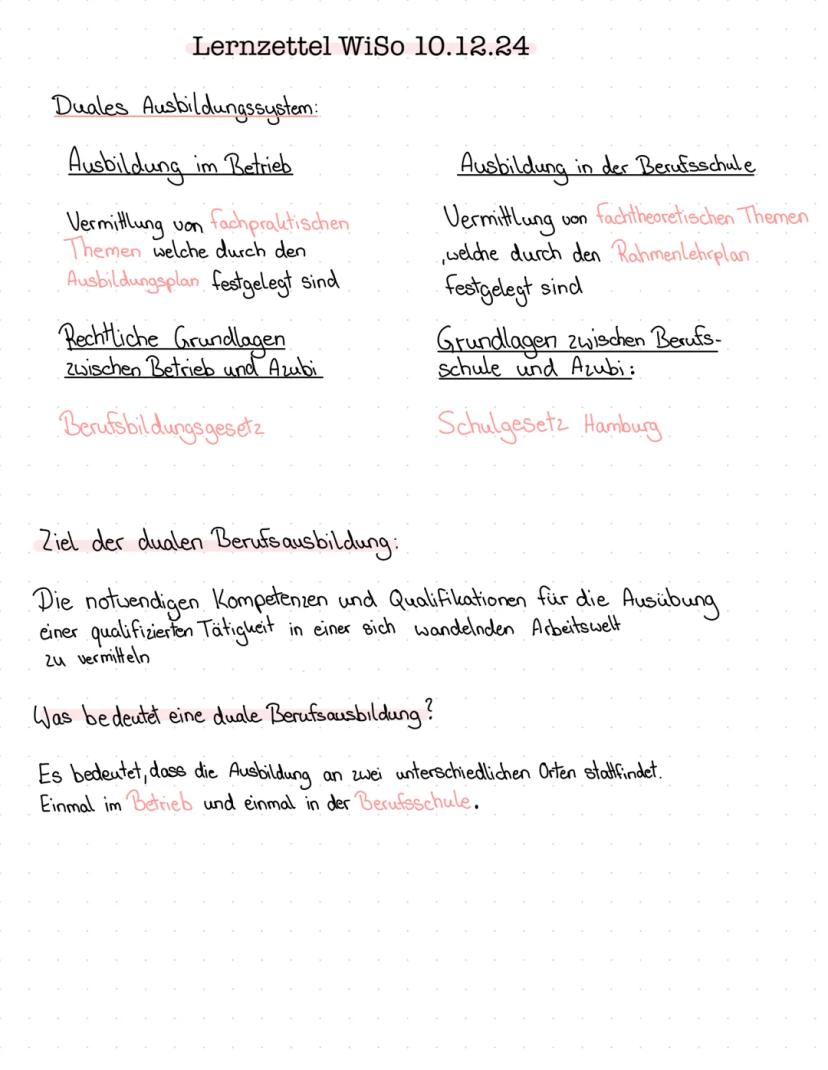 Lernzettel WiSo 10.12.24
Duales Ausbildungssystem:
Ausbildung im Betrieb
Vermittlung von fachpraktischen
Themen welche durch den
Ausbildungsplan festgelegt sind
Rechtliche Grundlagen
zwischen Betrieb und Azubi
Berufsbildungsgesetz
Ausbildung in der Berufsschule
Vermittlung von fachtheoretischen Themen
,welche durch den Rahmenlehrplan
festgelegt sind
Grundlagen zwischen Berufs-
schule und Azubi:
Schulgesetz Hamburg
Ziel der dualen Berufsausbildung:
Die notwendigen Kompetenzen und Qualifikationen für die Ausübung
einer qualifizierten Tätigkeit in einer sich wandelnden Arbeitswelt
zu vermitteln
Was bedeutet eine duale Berufsausbildung?
Es bedeutet, dass die Ausbildung an zwei unterschiedlichen Orten stattfindet.
Einmal im Betrieb und einmal in der Berufsschule.